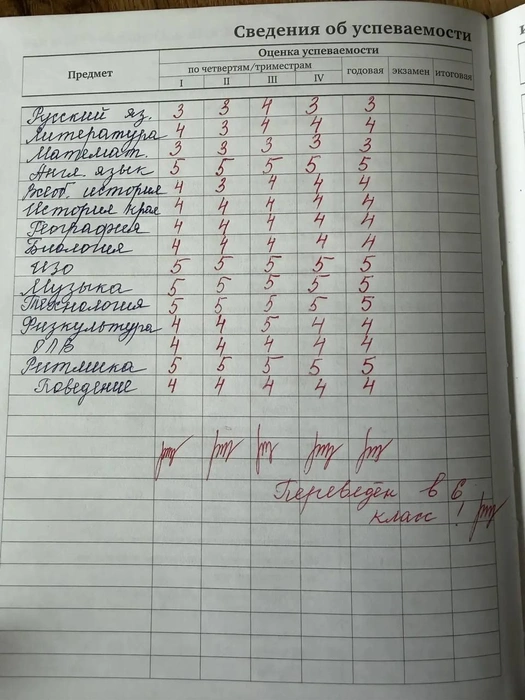 Сведения об успеваемости
Предмет
Оценка успеваемости
по четвертям/триместрам
I II III IV годовая экзамен итоговая
Русский яз. 3 3 4 3 3
Литература 4 3 4 4 4
Математ. 3 3 3 3 3
Англ. язык 5 5 5 5 5
Всеоб. история 4 3 4 4 4
История края 4 4 4 4 4
География 4 4 4 4 4
Биология 4 4 4 4 4
ИЗО 5 5 5 5 5
Музыка 5 5 5 5 5
Технология 5 5 5 5 5
Физкультура 4 4 5 4 4
ОПВ 4 4 4 4 4
Ритмика 5 5 5 5 5
Поведение 4 4 4 4 4
Переведён в 6
класс!